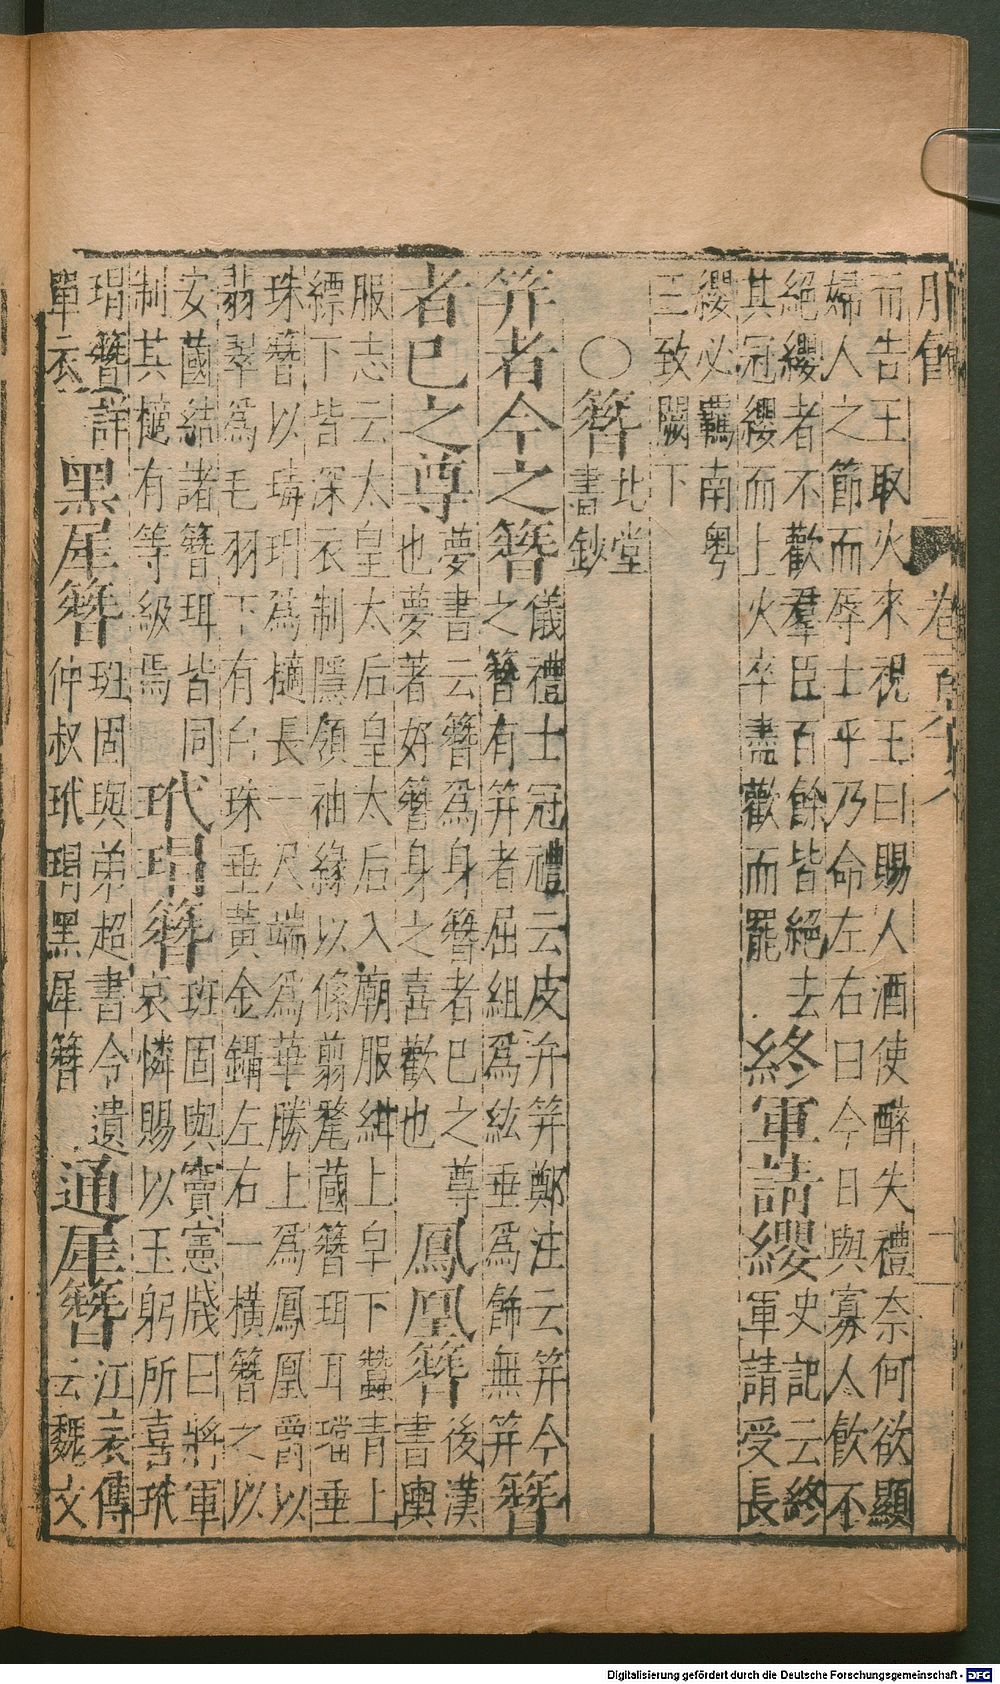 而告王取火來視王曰賜人酒使醉失禮奈何欲顯
婦人之節而辱士乎乃命左右曰今日與寡人飲不
絕纓者不歡羣臣百餘皆絕去
其冠纓而上火卒盡歡而罷
終軍請纓
史記云終
軍請受長
纓必羈南粤
三致闕下
○簪
北堂
書鈔
笄者今之簪
儀禮士冠禮云皮弁笄鄭注云笄今
之簪有笄者屈組爲紘垂爲飾無笄
簪
者巳之尊
夢書云簪爲身簪者巳之尊
也夢著好簪身之喜歡也
鳳凰簪
後漢
書輿
服志云太皇太后皇太后入廟服紺上皁下蠶青上
縹下皆深衣制隱領袖緣以絛翦氂蔮簪珥耳璫垂
珠簪以瑇瑁爲擿長一尺端爲華勝上爲鳳凰爵以
翡翠爲毛羽下有白珠垂黃金鑷左右一橫簪之以
安蔮結諸簪珥皆同
制其擿有等級焉
玳瑁簪
班固與竇憲牋曰將軍
哀憐賜以玉躬所喜玳
瑁簪詳
單衣
黑犀簪
班固與弟超書今遺
仲叔玳瑁黑犀簪
通犀簪
江表傳
云魏文
Digitalisierung gefördert durch die Deutsche Forschungsgemeinschaft - DFG